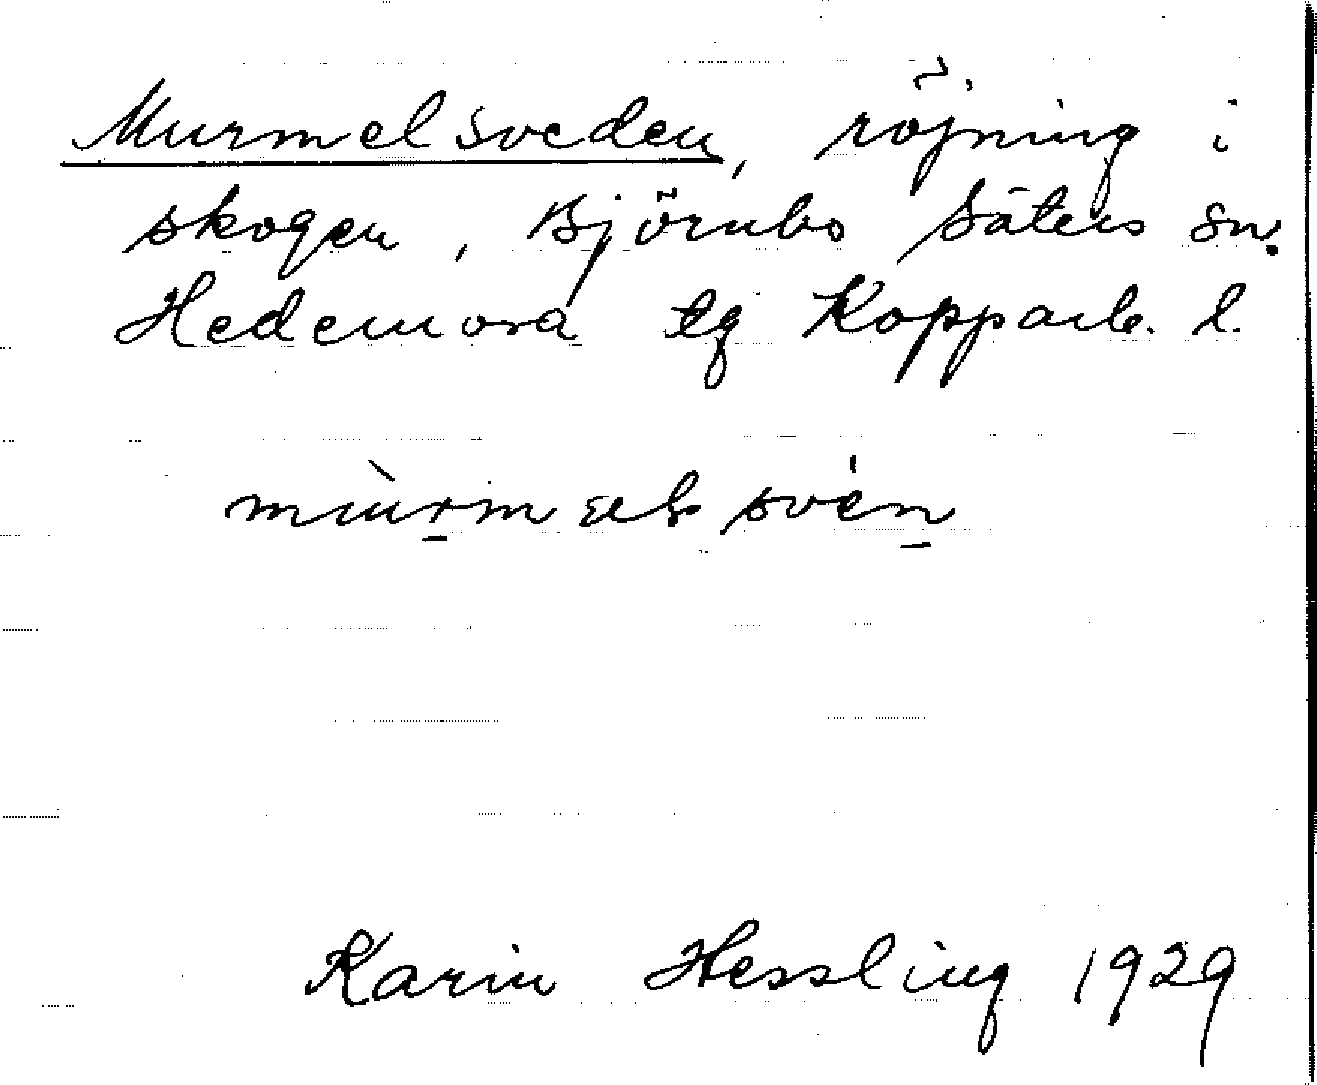 Murmelsveden, röjning i
skogen, Björnbo Säters sn.
Hedemora tg Kopparb. l.
Karin Hessling 1929